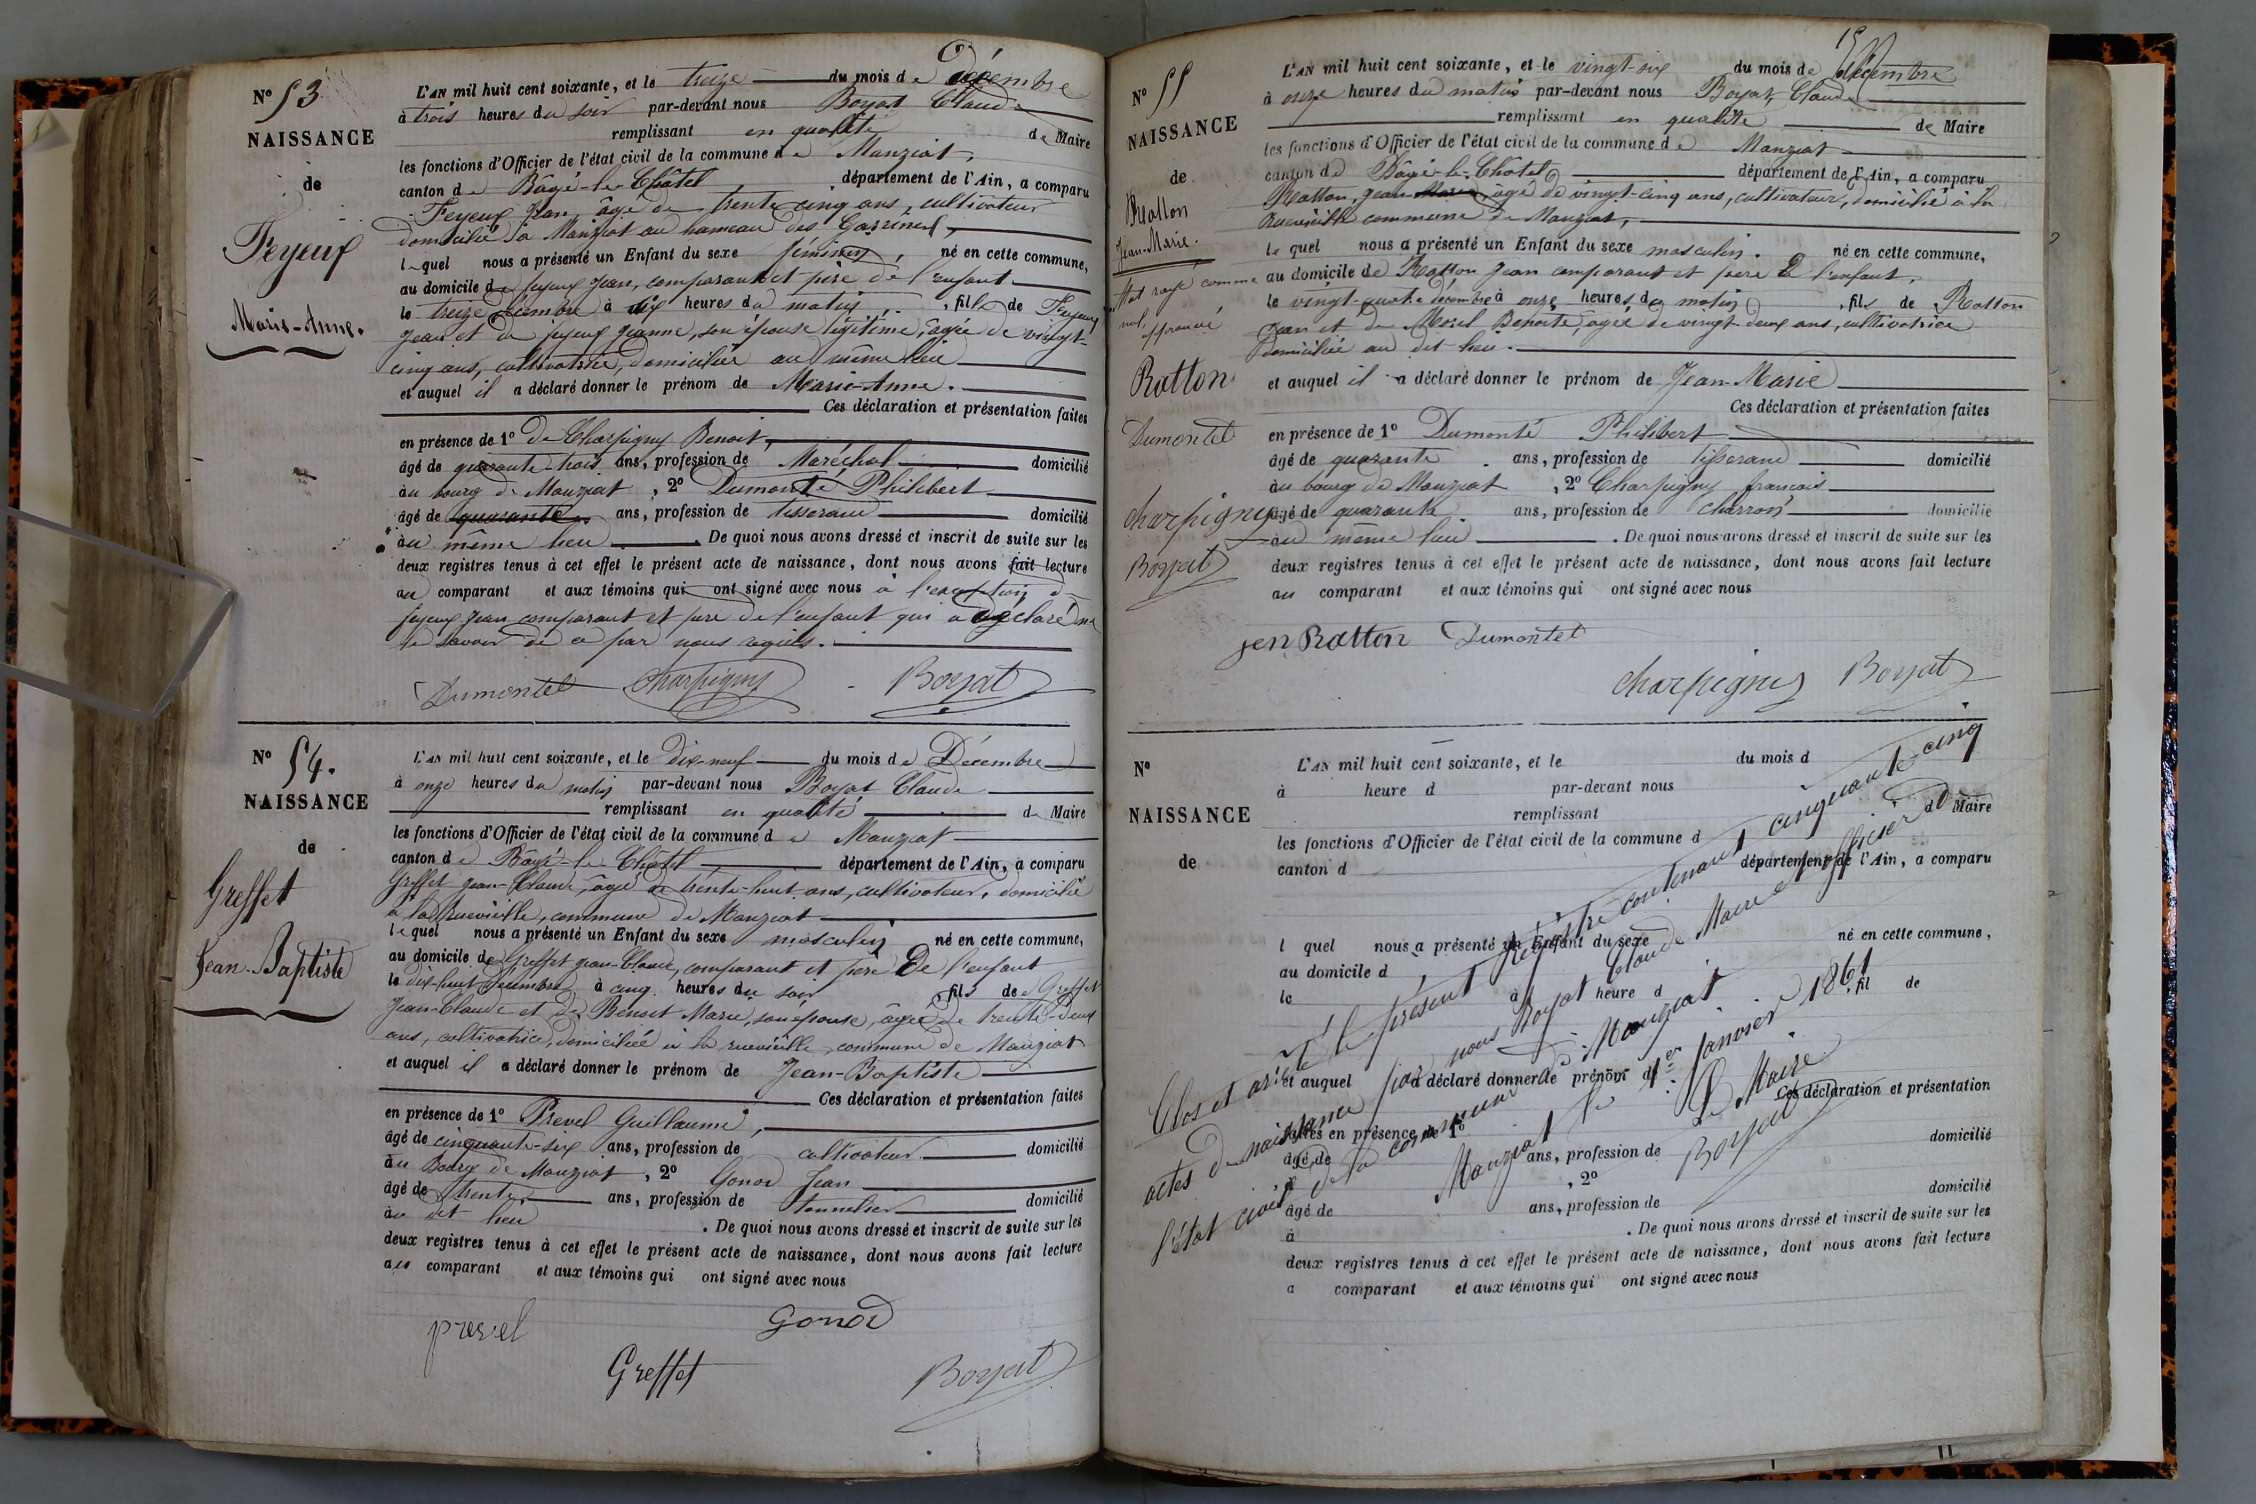 N° 53
NAISSANCE
de
Feyeux
Marie-Anne.
L'AN mil huit cent soixante, et le treize du mois de Décembre
à trois heures du soir par-devant nous Boyat Claude
remplissant en qualité de Maire
les fonctions d'Officier de l'état civil de la commune de Manziat,
canton de Bâgé-le-Châtel, département de l'Ain, a comparu
Feyeux Jean, âgé de trente cinq ans, cultivateur
domicilié à Manziat au hameau des
lequel nous a présenté un Enfant du sexe féminin, né en cette commune,
au domicile de feyeux Jean, comparant et père de l'enfant
le treize décembre à six heures du matin, fille de Feyeux
Jean et de feyeux Jeanne, son épouse légitime, âgée de vingt-
cinq ans, cultivatrice, domiciliée au même lieu
et auquel il a déclaré donner le prénom de Marie-Anne.
Ces déclaration et présentation faites
en présence de 1° De Charpigny Benoit,
âgé de quarante-trois ans, profession de Maréchal domicilié
au bourg de Manziat, 2° Dumonté Philibert
âgé de quarante ans, profession de tisserand domicilié
au même lieu. De quoi nous avons dressé et inscrit de suite sur les
deux registres tenus à cet effet le présent acte de naissance, dont nous avons fait lecture
au comparant et aux témoins qui ont signé avec nous à l'exception de
feyeux Jean comparant et père de l'enfant qui a déclaré ne
le savoir de ce par nous requis.
Dumontel Charpigny Boyat
N° 54.
NAISSANCE
de
Greffet
Jean-Baptiste
L'AN mil huit cent soixante, et le dix-neuf du mois de Décembre
à onze heures du matin par-devant nous Boyat Claude
remplissant en qualité de Maire
les fonctions d'Officier de l'état civil de la commune de Manziat
canton de Bâgé-le-Châtel département de l'Ain, a comparu
Greffet Jean-Claude, âgé de trente-huit ans, cultivateur, domicilié
à la ruevieille, commune de Manziat
lequel nous a présenté un Enfant du sexe masculin né en cette commune,
au domicile de Greffet Jean-Claude, comparant et père De l'enfant
le dix-huit Décembre à cinq heures du soir, fils de Greffet
Jean-Claude et de Benoit Marie, son épouse, âgée de trente-deux
ans, cultivatrice, domiciliée à la ruevieille, commune de Manziat
et auquel il a déclaré donner le prénom de Jean-Baptiste
Ces déclaration et présentation faites
en présence de 1° Prevel Guillaume,
âgé de cinquante-six ans, profession de cultivateur domicilié
au Bourg de Manziat, 2° Gonod Jean
âgé de trente ans, profession de tonnelier domicilié
au dit lieu. De quoi nous avons dressé et inscrit de suite sur les
deux registres tenus à cet effet le présent acte de naissance, dont nous avons fait lecture
au comparant et aux témoins qui ont signé avec nous
prevel Gonod
Greffet Boyat
N° 55
NAISSANCE
de
Ratton
Jean-Marie.
Mot rayé comme
nul, approuvé
Ratton
Dumontel
Charpigny
Boyat
L'AN mil huit cent soixante, et le vingt-six du mois de décembre
à onze heures du matin par-devant nous Boyat, Claude
remplissant en qualité de Maire
les fonctions d'Officier de l'état civil de la commune de Manziat
canton de Bâgé-le-Châtel département de l'Ain, a comparu
Ratton, Jean Marie âgé de vingt-cinq ans, cultivateur, domicilié à la
Ruevieille commune de Manziat,
lequel nous a présenté un Enfant du sexe masculin. né en cette commune,
au domicile de Ratton Jean comparant et père de l'enfant,
le vingt-quatre décembre à onze heures du matin, fils de Ratton
Jean et de Morel Benoite, âgée de vingt-deux ans, cultivatrice
domiciliée au dit lieu.
et auquel il a déclaré donner le prénom de Jean-Marie
Ces déclaration et présentation faites
en présence de 1° Dumonté Philibert
âgé de quarante ans, profession de tisserand domicilié
au bourg de Manziat, 2° Charpigny francois
âgé de quarante ans, profession de charron domicilié
au même lieu. De quoi nous avons dressé et inscrit de suite sur les
deux registres tenus à cet effet le présent acte de naissance, dont nous avons fait lecture
au comparant et aux témoins qui ont signé avec nous
jen Ratton Dumontel
Charpigny Boyat
N°
NAISSANCE
de
L'AN mil huit cent soixante, et le du mois d
à heure d par-devant nous
remplissant d Maire
les fonctions d'Officier de l'état civil de la commune d
canton d département de l'Ain, a comparu
l quel nous a présenté un Enfant du sexe né en cette commune,
au domicile d
le à heure d , fil de
et auquel a déclaré donner le prénom d
Ces déclaration et présentation
faites en présence de 1°
âgé de ans, profession de domicilié
à , 2°
âgé de ans, profession de domicilié
à . De quoi nous avons dressé et inscrit de suite sur les
deux registres tenus à cet effet le présent acte de naissance, dont nous avons fait lecture
a comparant et aux témoins qui ont signé avec nous
Clos et arrêté le présent Registre contenant cinquante-cinq
actes de naissance par nous Boyat Claude Maire et officier de
l'état civil de la commune de Manziat
Manziat le 1er Janvier 1861
Le Maire
Boyat